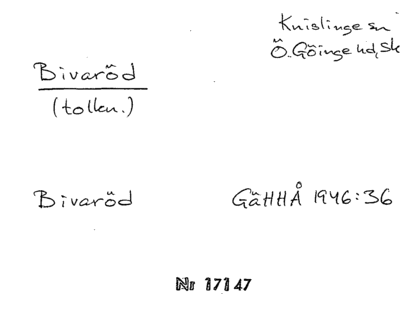 Knislinge sn
Ö. Göinge hd, Sk
Bivaröd
(tolkn.)
Bivaröd GäHHÅ 1946:36
Nr 17147